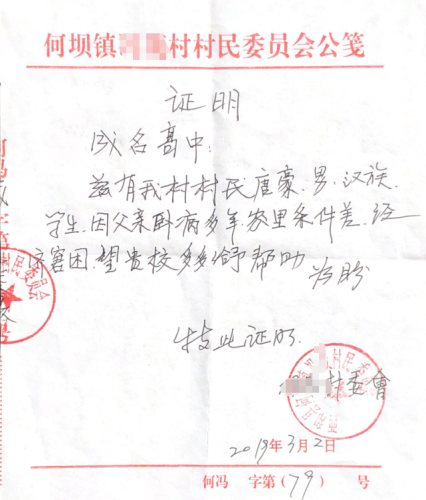 何坝镇村村民委员会公笺
证明
成名高中：
兹有我村村民唐豪，男，汉族，
学生，因父亲卧病多年，家里条件差，经
济窘困，望贵校多多给予帮助 为盼
特此证明。
村委會
2019年3月2日
何冯 字第（79）号